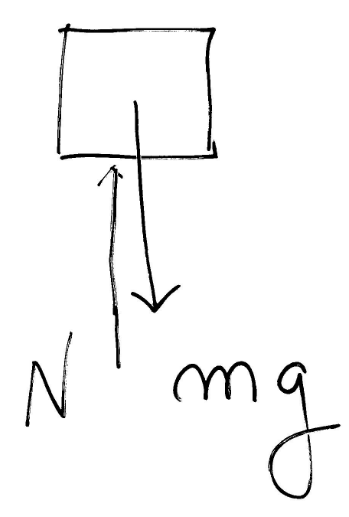 N mg